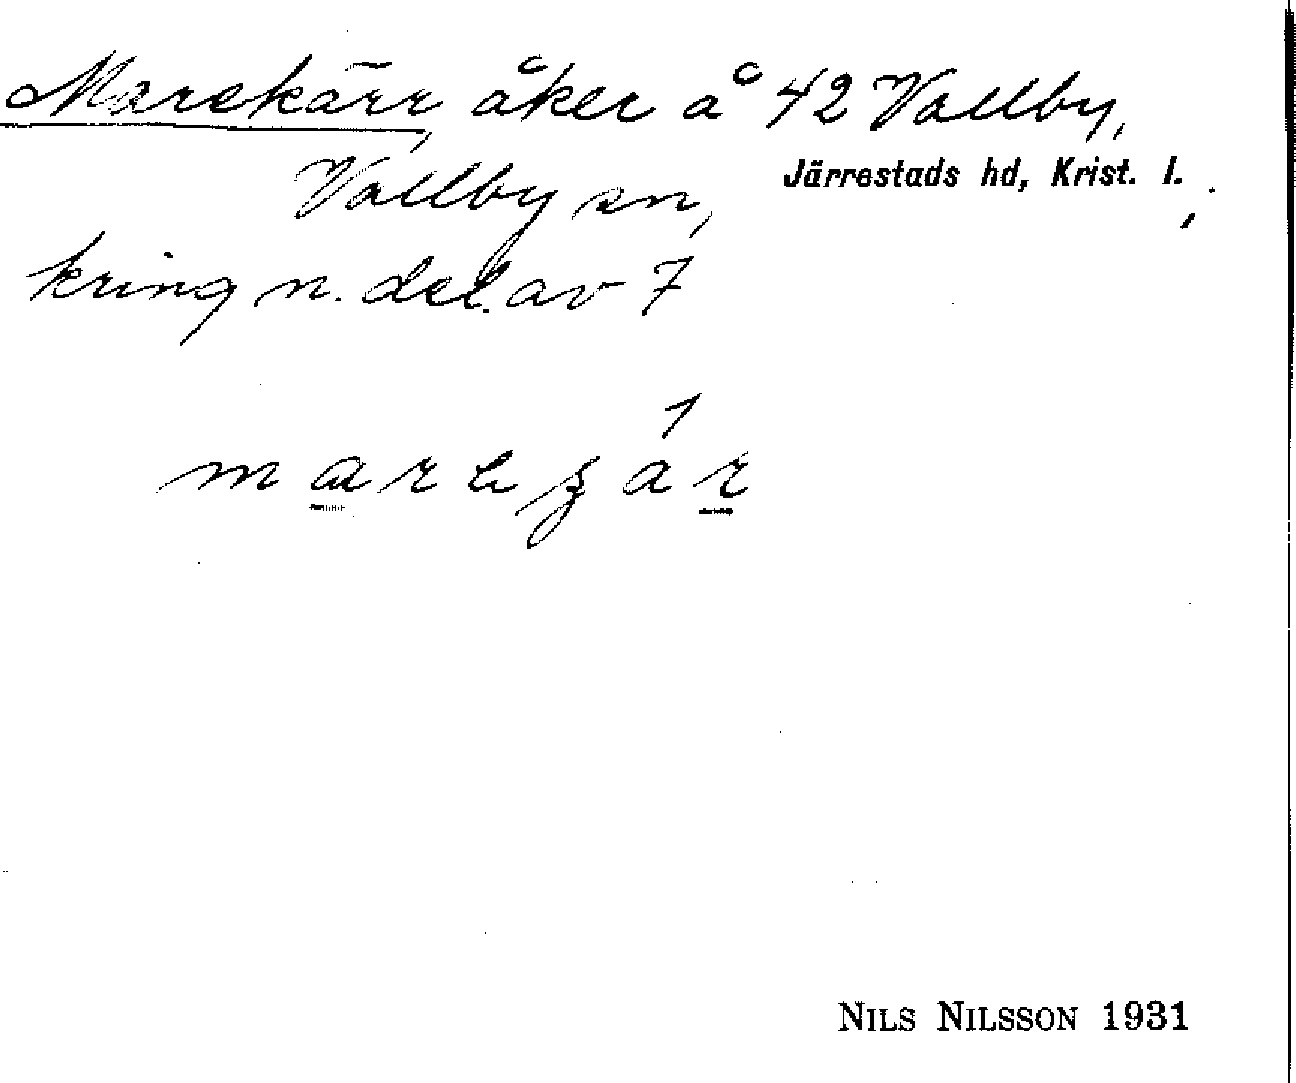 Marekärr, åker å 42 Vallby,
Järrestads hd, Krist. l.
Vallby sn,
kring n. del. av 7
NILS NILSSON 1931